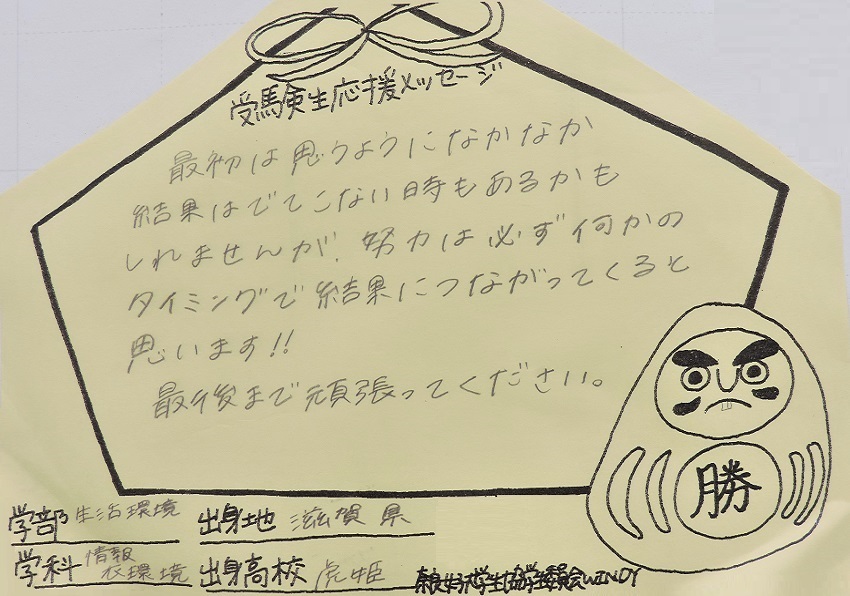 受験生応援メッセージ
最初は思うようになかなか
結果はでてこない時もあるかも
しれませんが、努力は必ず何かの
タイミングで結果につながってくると
思います!!
最後まで頑張ってください。
勝
学部 生活環境 出身地 滋賀県
学科 情報衣環境 出身高校 虎姫
奈良女子大学生協学生委員会WINDY